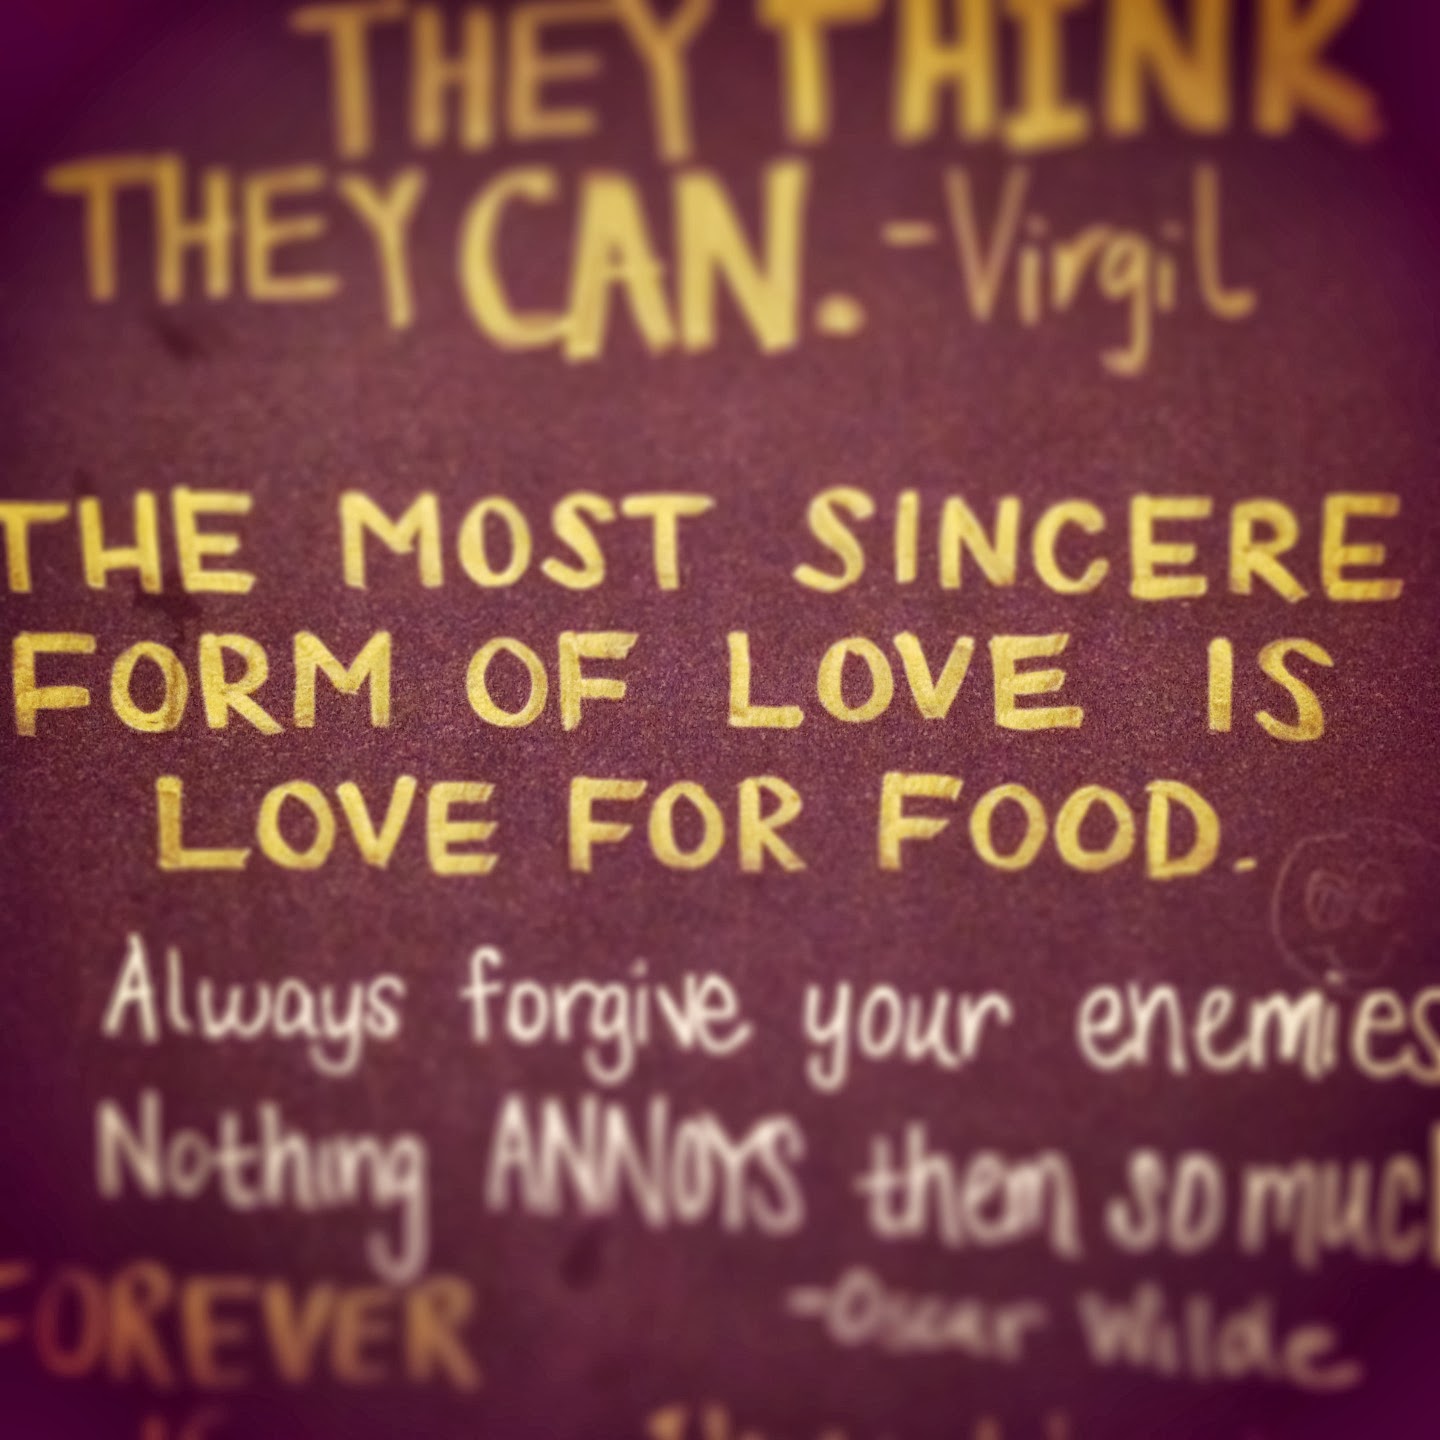 THEY THINK
THEY CAN. -Virgil
THE MOST SINCERE
FORM OF LOVE IS
LOVE FOR FOOD.
Always forgive your enemies
Nothing ANNOYS them so much
FOREVER -Oscar Wilde